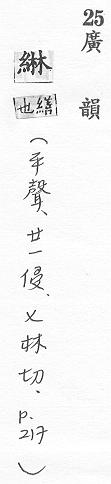 25 廣韻
綝 繕也 (平聲、廿一侵、丑林切、p.217)